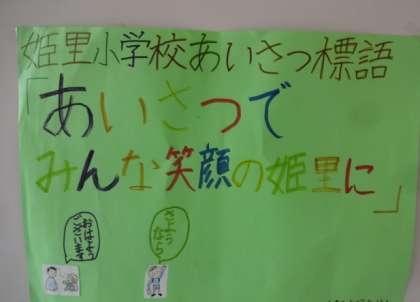 姫里小学校あいさつ標語
「あいさつで
みんな笑顔の姫里に」
おはよう
ございます
さよう
なら